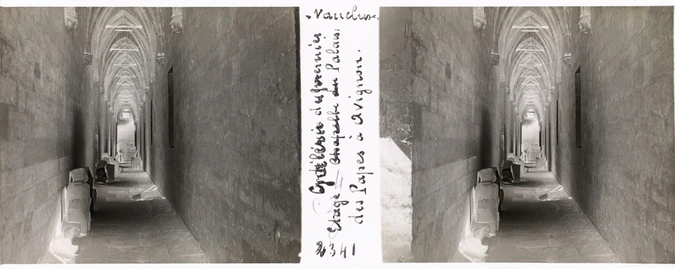 Vaucluse.
Galerie du premier
Etage Chapelle du Palais
des Papes à Avignon.
2341